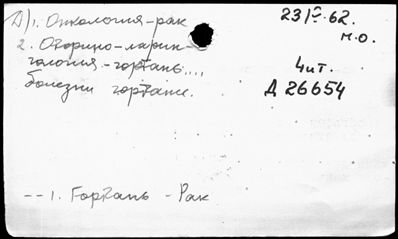 Д/1. Онкология - рак
2. Оторино-ларин-
гология - гортань....
болезни гортани.
23/V-62.
м.о.
Чит.
Д 26654
-- 1. Гортань - Рак